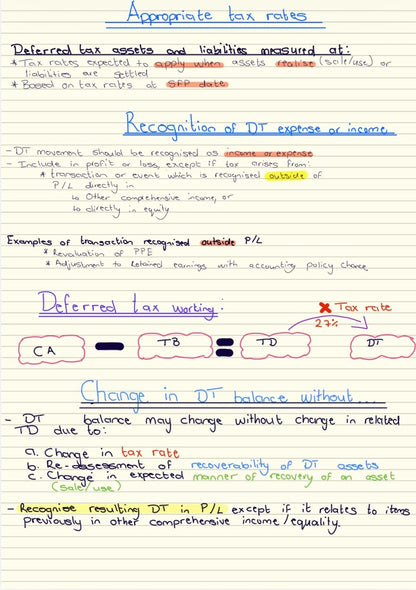 Appropriate tax rates
Deferred tax assets and liabilities measured at:
* Tax rates expected to apply when assets realise (sale/use) or
liabilities are settled
* Based on tax rates at SFP date
Recognition of DT expense or income
- DT movement should be recognised as income or expense
- Include in profit or loss, except if tax arises from:
* transaction or event which is recognised outside of
P/L directly in
↳ Other comprehensive income, or
↳ directly in equity
Examples of transaction recognised outside P/L
* Revaluation of PPE
* Adjustment to retained earnings with accounting policy change
Deferred tax working:
× Tax rate
27%
CA - TB = TD DT
Change in DT balance without...
- DT balance may change without change in related
TD due to:
a. Change in tax rate
b. Re-assessment of recoverability of DT assets
c. Change in expected manner of recovery of an asset
(sale/use)
- Recognise resulting DT in P/L except if it relates to items
previously in other comprehensive income/equality.